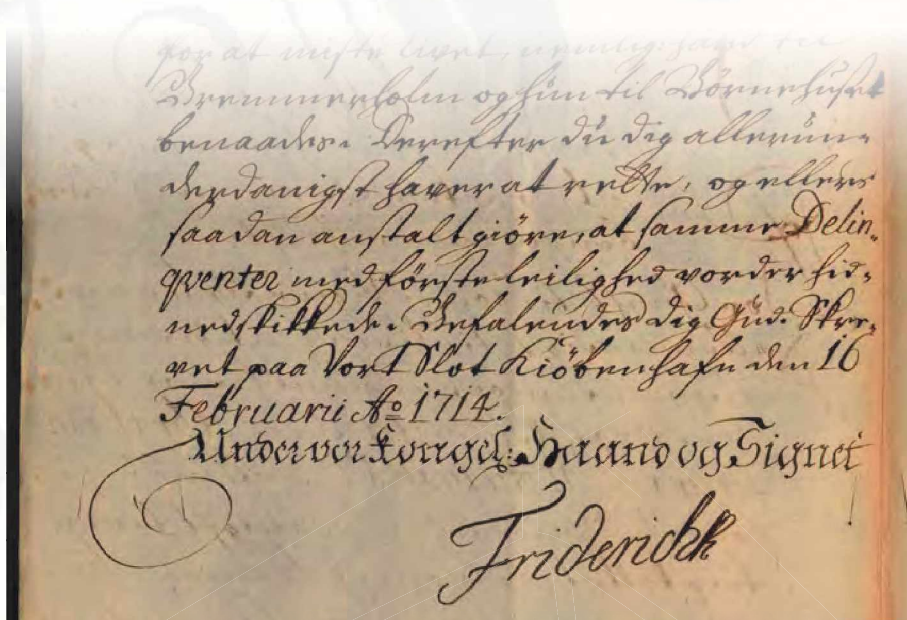 for at miste livet, nemlig hand til
Bremmerholm og hun til Börnehuset
benaades. Derefter du dig allerun-
derdanigst haver at rette, og ellers
saadan anstalt giöre, at samme Delin-
qventer med förste leilighed vorder hid-
nedskikkede. Befalendes dig Gud. Skre-
vet paa Vort Slot Kiöbenhafn den 16
Februarii Ao 1714.
Under vor Kongel: Haand og Signet
Friderickh